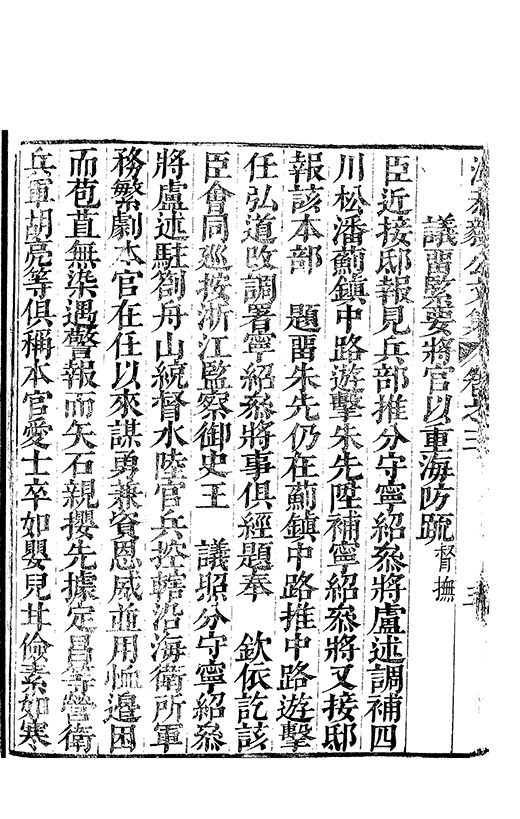 議畱緊要將官以重海防疏 督撫
臣近接邸報見兵部推分守寧紹叅將盧述調補四
川松潘薊鎮中路遊擊朱先陞補寧紹叅將又接邸
報該本部 題畱朱先仍在薊鎮中路推中路遊擊
任弘道改調署寧紹叅將事俱經題奉 欽依訖該
臣會同巡按浙江監察御史王 議照分守寧紹叅
將盧述駐劄舟山統督水陸官兵控轄沿海衛所軍
務繁劇本官在任以來謀勇兼資恩威並用恤邉困
而苞苴無染遇警報而矢石親攖先據定昌等營衛
兵軍胡亮等俱稱本官愛士卒如嬰兒甘儉素如寒